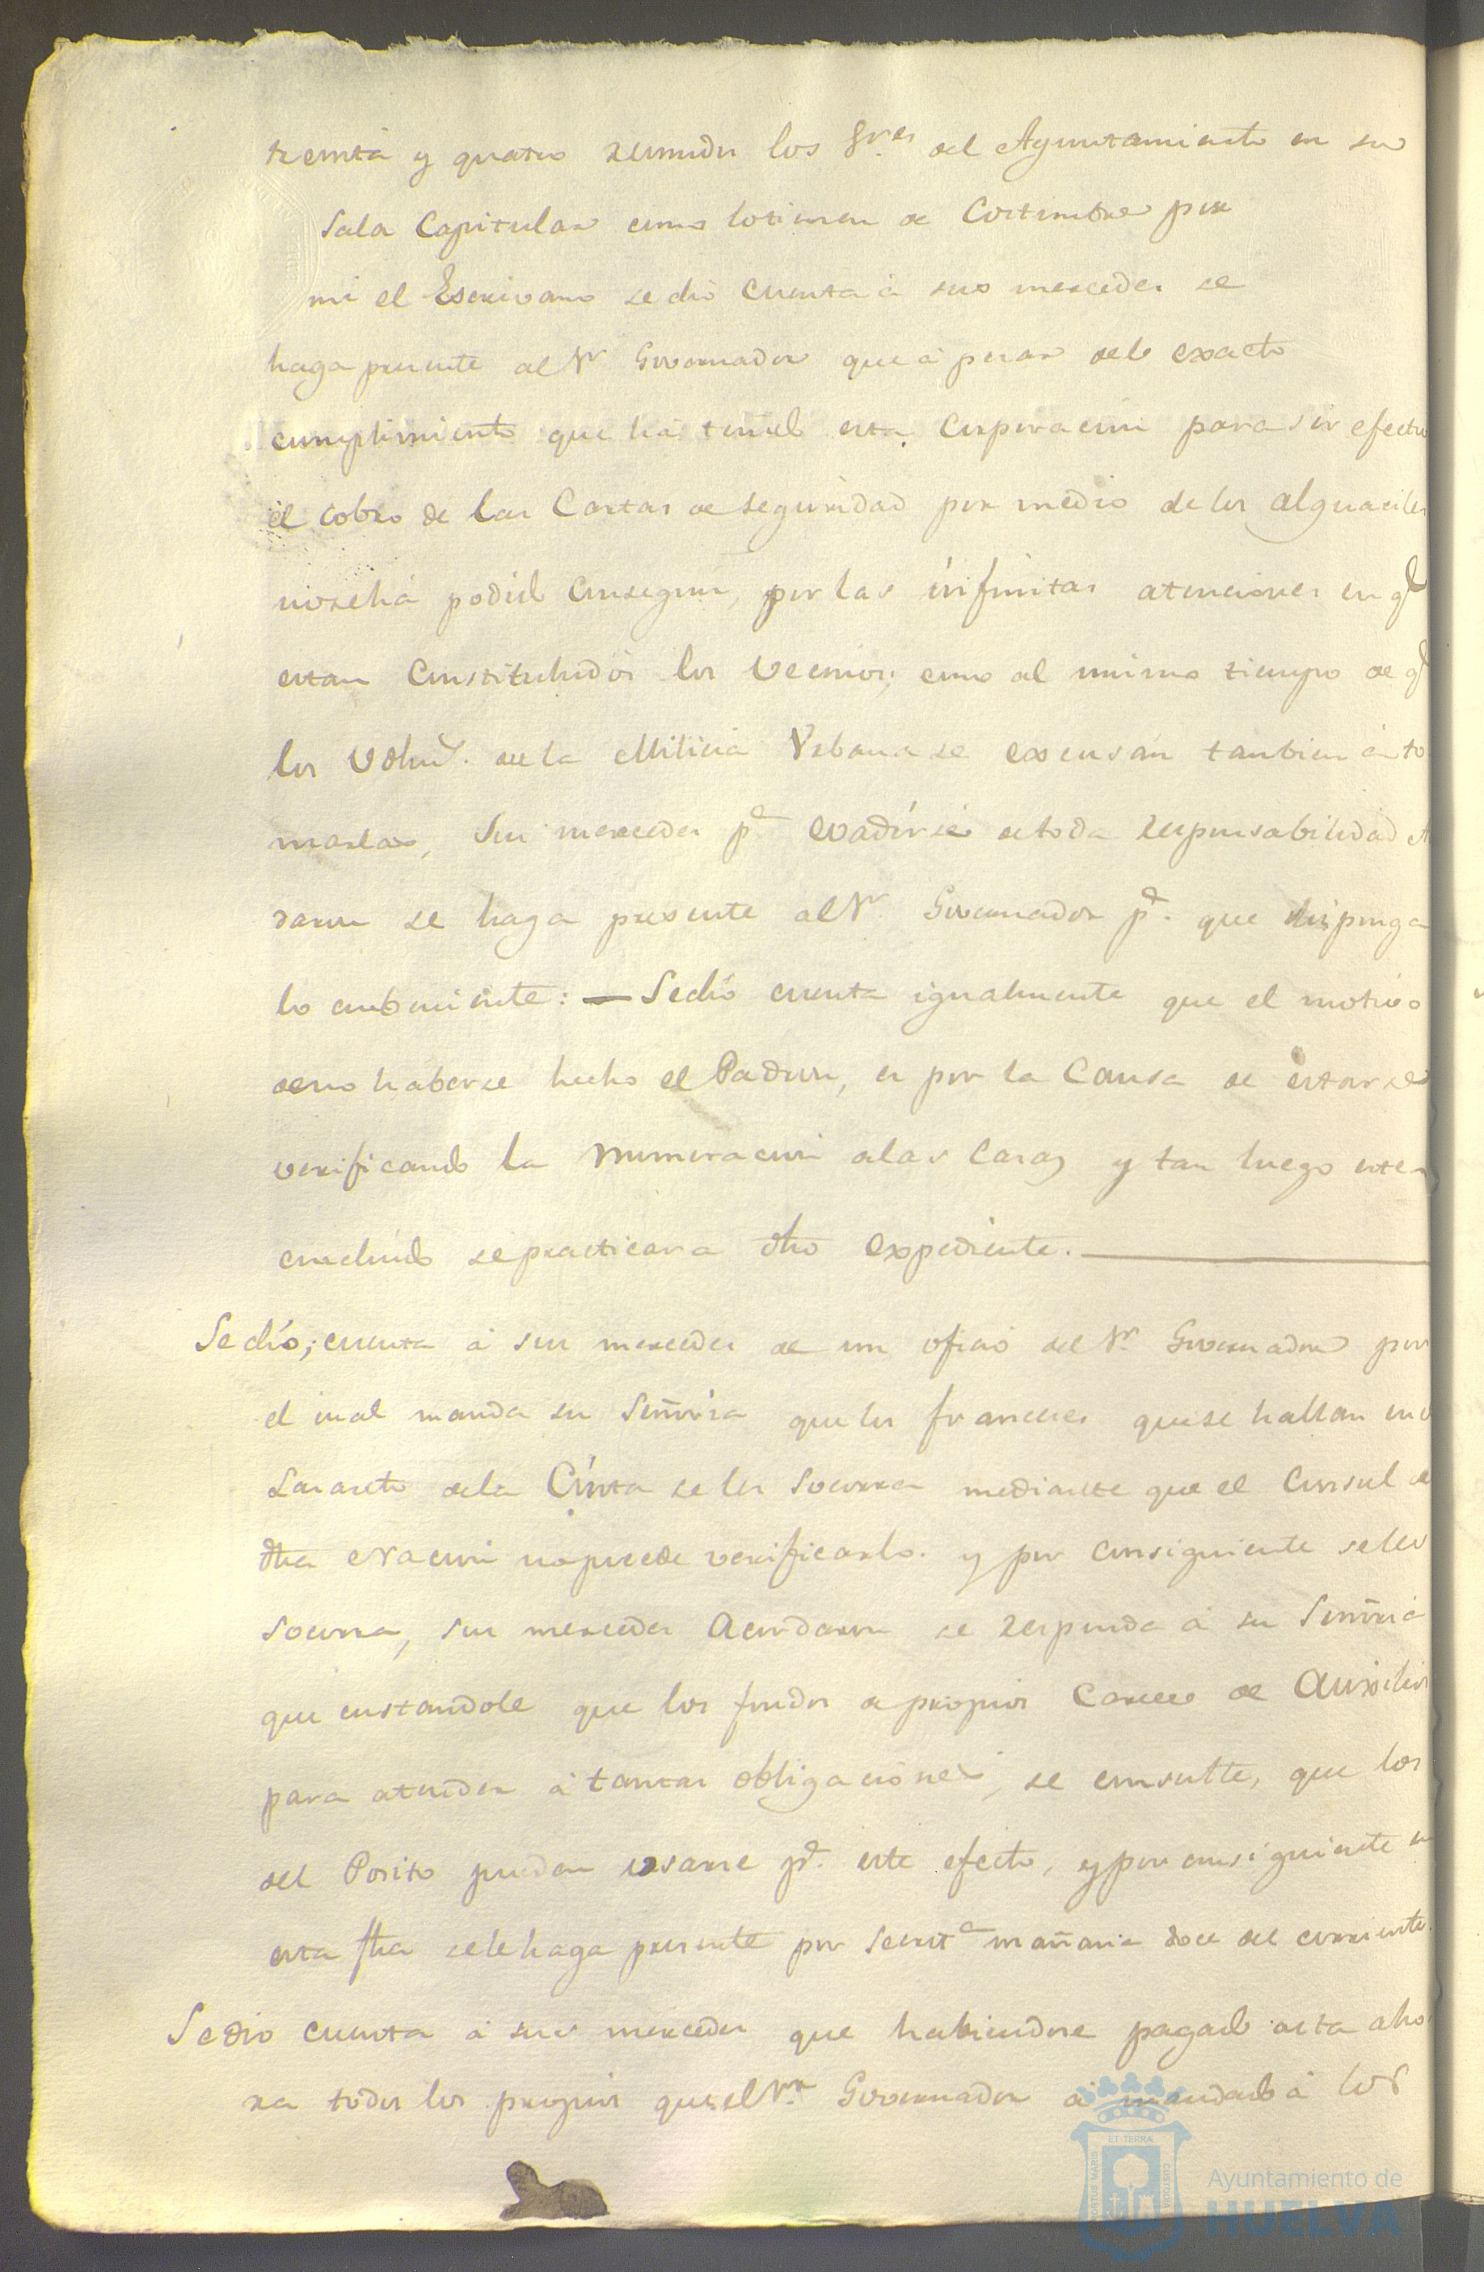 treinta y quatro reunidos los S.res del Ayuntamiento en su
Sala Capitular como lo tienen de Costumbre por
mi el Escrivano se dio cuenta à sus mercedes se
haga presente al Sr Governador que à pesar del exacto
cumplimiento que ha tenido esta Corporacion para
el cobro de las Cartas de seguridad por medio de los alguaciles
no se há podido conseguir, por las infinitas atenciones en q.e
estan Constituhidos los Vecinos; como al mismo tiempo de q.e
los de la Milicia Vrbana se excusan tanbien à to
marlas, Sus mercedes p.a evadirse de toda responsabilidad
daron se haga presente al Sr. Governador p.a que disponga
lo conbeniente: — Se dió cuenta igualmente que el motivo
de no haberse hecho el Padron, es por la Causa de estarse
verificando la Numeracion de las Casas y tan luego este
concluido se practicara dho expediente.
Se dió; cuenta à sus mercedes de un oficio del Sr. Governador por
el cual manda su Señoria que los franceses que se hallan en
Lazareto de la Cinta se les Socorra mediante que el Consul de
dha Nacion no puede verificarlo. y por consiguiente se les
Socorra, sus mercedes Acordaron se responda à su Señoria
que constandole que los fondos de propios Carece de Auxilios
para atender à tantas obligaciones, se consulte, que los
del Posito puedan usarse p.a este efecto, y por consiguiente
esta fha se le haga presente por Secret.a mañana doce del corriente.
Se dio cuenta à sus mercedes que habiendose pagado asta aho
ra todos los propios que el Sr. Governador à mandado à los
ET TERRÆ
PORTUS MARIS
CUSTODIA
Ayuntamiento de
HUELVA